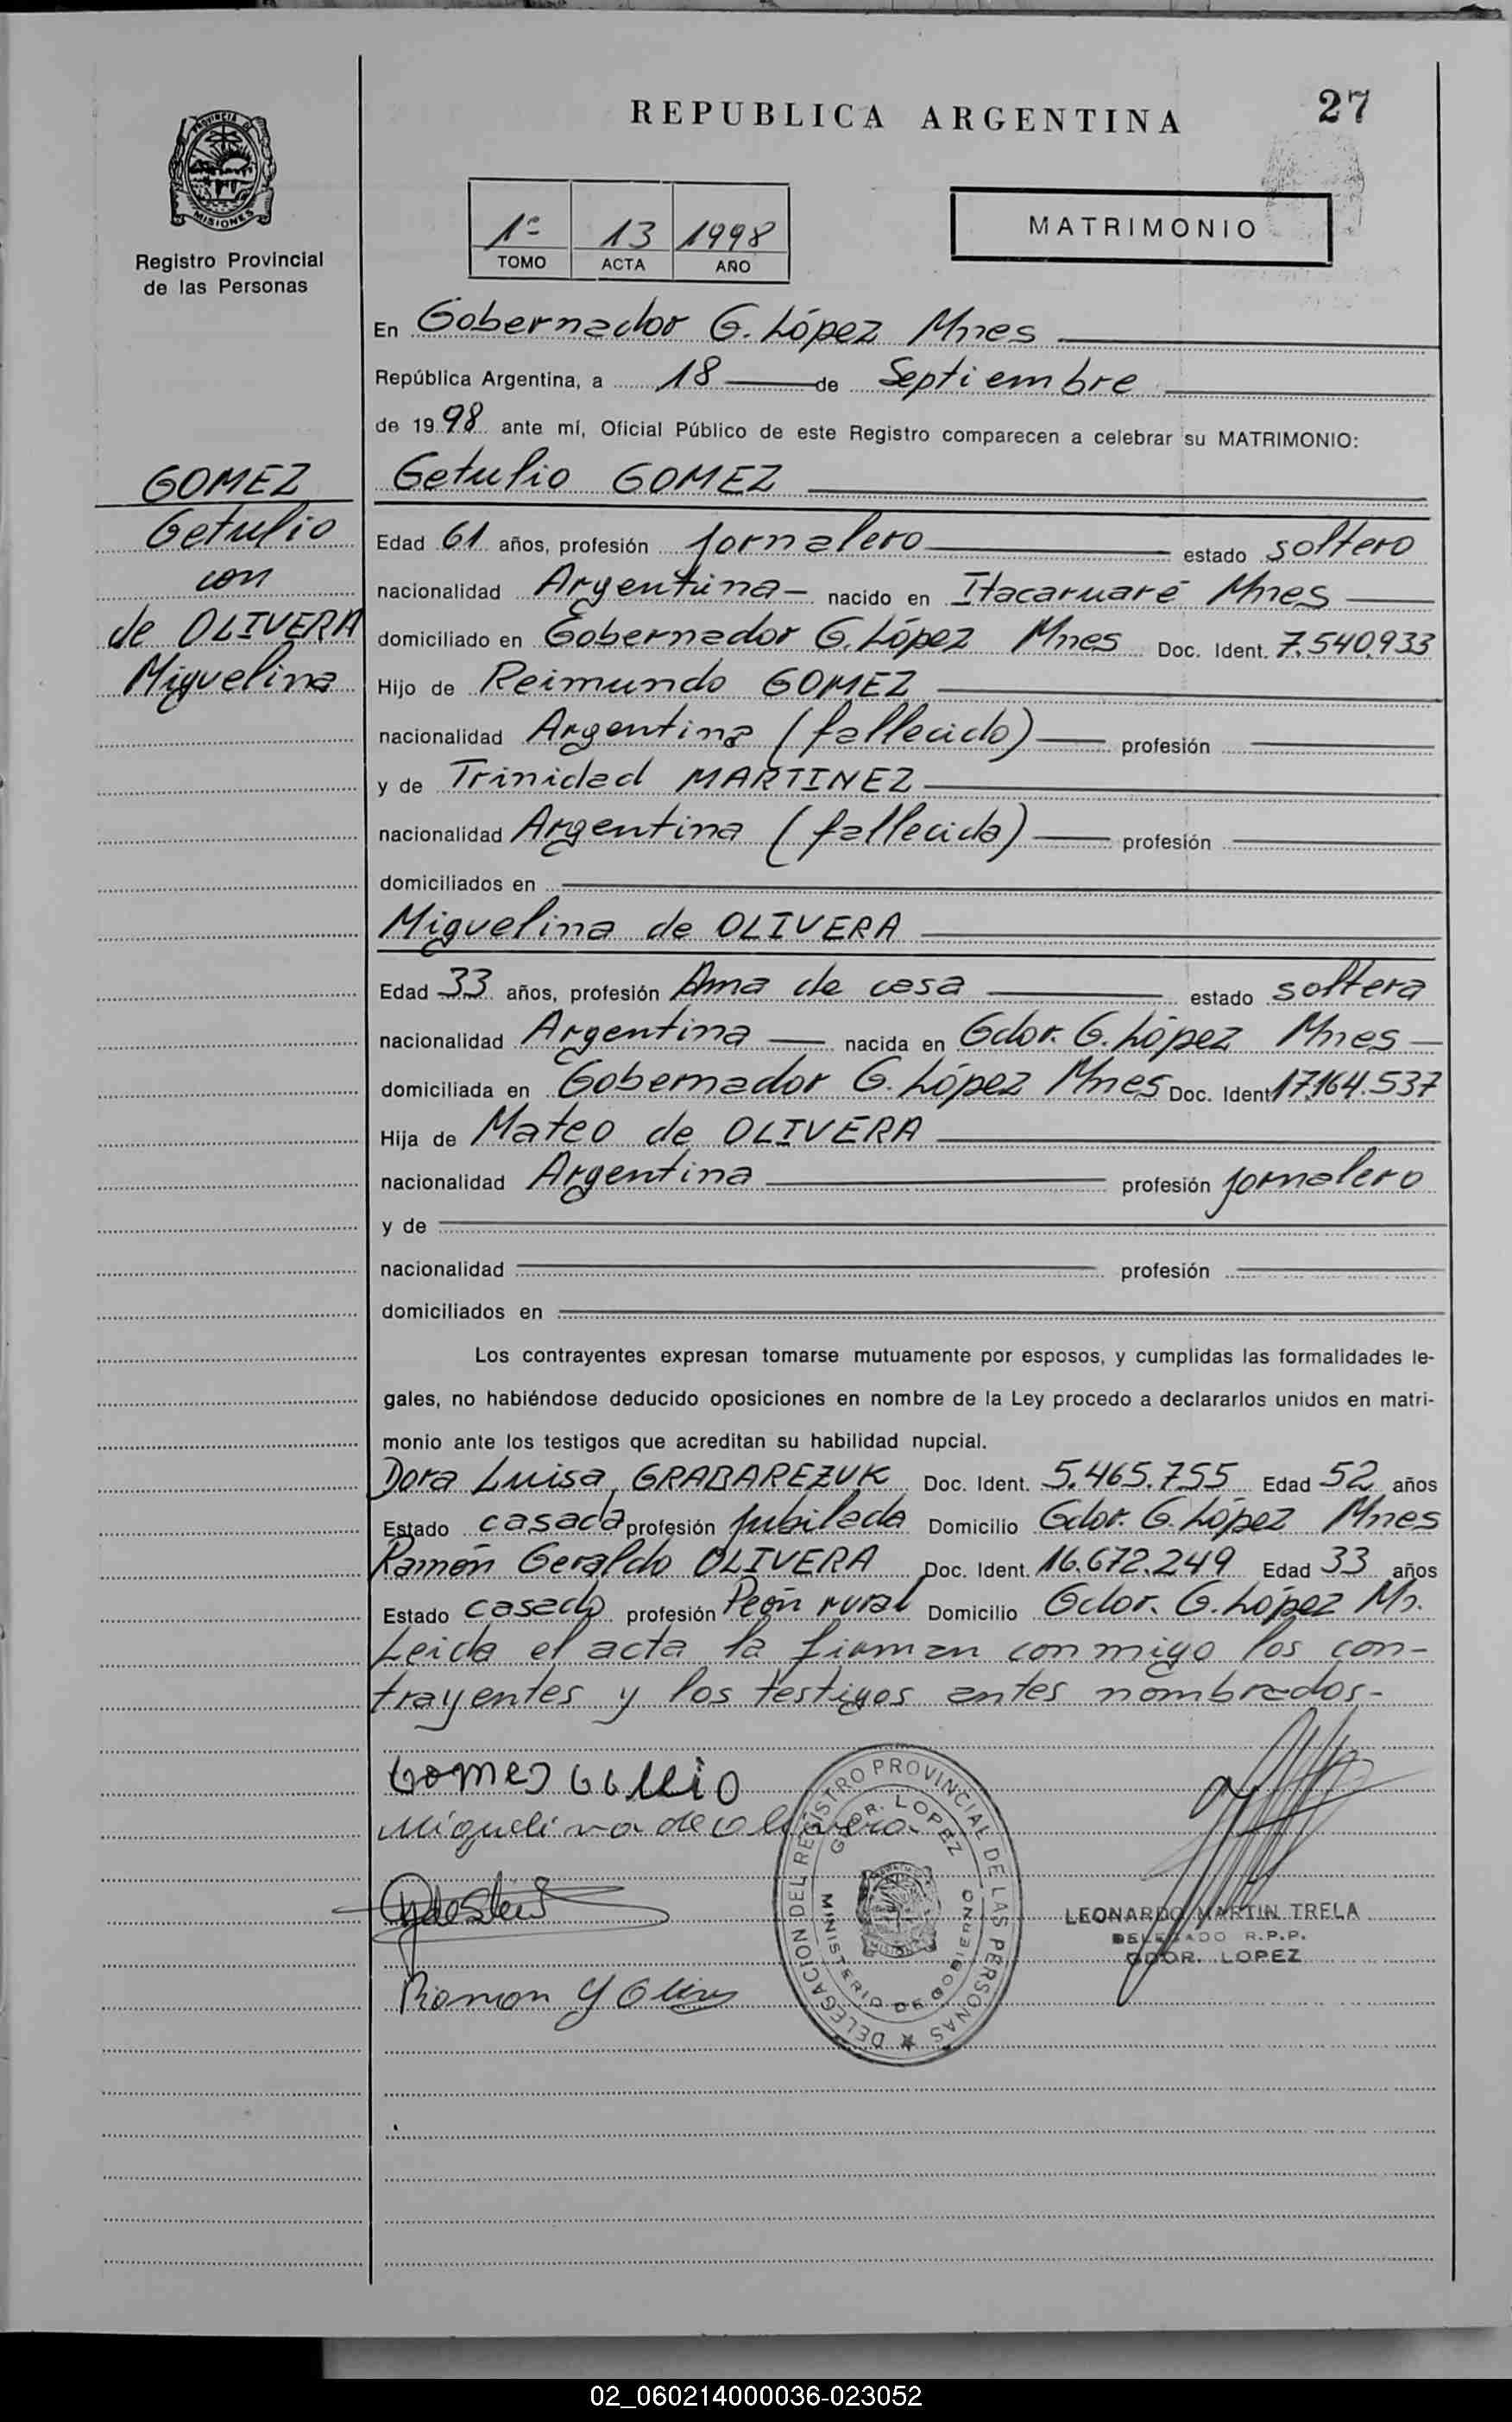 REPUBLICA ARGENTINA
27
PROVINCIA DE
MISIONES
Registro Provincial
de las Personas
1º 13 1998
TOMO ACTA AÑO
MATRIMONIO
En Gobernador G. López Mnes
República Argentina, a 18 de Septiembre
de 1998 ante mí, Oficial Público de este Registro comparecen a celebrar su MATRIMONIO:
GOMEZ
Getulio
con
de OLIVERA
Miguelina
Getulio GOMEZ
Edad 61 años, profesión jornalero estado soltero
nacionalidad Argentina nacido en Itacaruaré Mnes
domiciliado en Gobernador G. López Mnes Doc. Ident. 7.540.933
Hijo de Reimundo GOMEZ
nacionalidad Argentina (fallecido) profesión
y de Trinidad MARTINEZ
nacionalidad Argentina (fallecida) profesión
domiciliados en
Miguelina de OLIVERA
Edad 33 años, profesión Ama de casa estado soltera
nacionalidad Argentina nacida en Gdor. G. López Mnes
domiciliada en Gobernador G. López Mnes Doc. Ident 17.164.537
Hija de Mateo de OLIVERA
nacionalidad Argentina profesión jornalero
y de
nacionalidad profesión
domiciliados en
Los contrayentes expresan tomarse mutuamente por esposos, y cumplidas las formalidades le-
gales, no habiéndose deducido oposiciones en nombre de la Ley procedo a declararlos unidos en matri-
monio ante los testigos que acreditan su habilidad nupcial.
Dora Luisa GRABAREZUK Doc. Ident. 5.465.755 Edad 52 años
Estado casada profesión jubilada Domicilio Gdor. G. López Mnes
Ramón Geraldo OLIVERA Doc. Ident. 16.672.249 Edad 33 años
Estado casado profesión Peón rural Domicilio Gdor. G. López Mn.
Leida el acta la firman conmigo los con-
trayentes y los testigos antes nombrados-
Miguelina de olivera
Ramon
DELEGACION DEL REGISTRO PROVINCIAL DE LAS PERSONAS
GDOR. LOPEZ
MINISTERIO DE GOBIERNO
LEONARDO MARTIN TRELA
DELEGADO R.P.P.
GDOR. LOPEZ
02_060214000036-023052